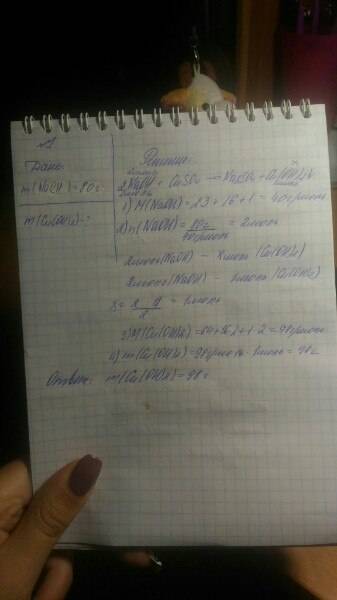 Дано:
m(NaOH)=80г
m(Cu(OH)2)-?
Решение:
2NaOH + CuSO4 → Na2SO4 + Cu(OH)2↓
1) M(NaOH) = 23 + 16 + 1 = 40 г/моль
2) n(NaOH) = 80г / 40г/моль = 2моль
2моль(NaOH) - xмоль (Cu(OH)2)
2моль(NaOH) - 1моль (Cu(OH)2)
= 1моль
3) M(Cu(OH)2) = 64+16·2+1·2 = 98г/моль
4) m(Cu(OH)2) = 98г/моль · 1моль = 98г
Ответ: m(Cu(OH)2) = 98г